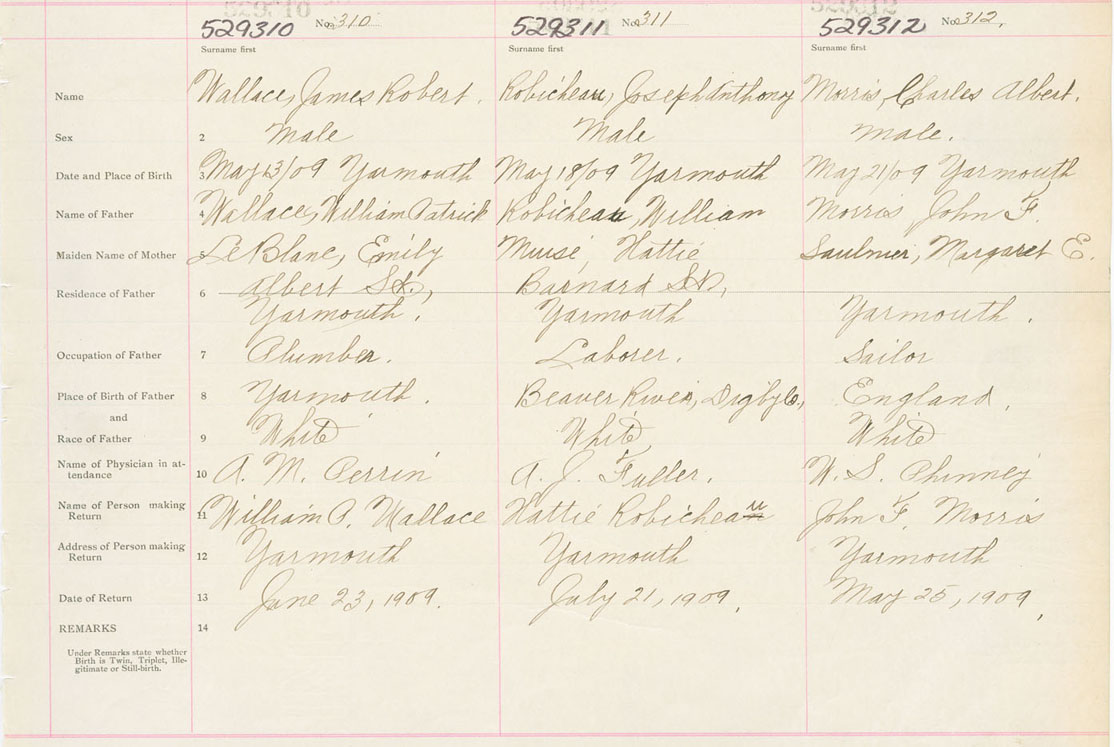 529310 No. 310 529311 No. 311 529312 No. 312.
Surname first Surname first Surname first
Name Wallace, James Robert. Robicheau, Joseph Anthony Morris, Charles Albert.
Sex 2 Male Male Male.
Date and Place of Birth 3 May 13/09 Yarmouth May 18/09 Yarmouth May 21/09 Yarmouth
Name of Father 4 Wallace, William Patrick Robicheau, William Morris, John F.
Maiden Name of Mother 5 LeBlanc, Emily Muise, Hattie Saulnier, Margaret E.
Residence of Father 6 Albert St., Barnard St.,
Yarmouth. Yarmouth Yarmouth.
Occupation of Father 7 Plumber. Laborer. Sailor
Place of Birth of Father 8 Yarmouth. Beaver River, Digby Co., England.
and
Race of Father 9 White White White
Name of Physician in at-
tendance 10 A. M. Perrin A. J. Fuller. W. S. Phinney
Name of Person making
Return 11 William P. Wallace Hattie Robicheau John F. Morris
Address of Person making
Return 12 Yarmouth Yarmouth Yarmouth
Date of Return 13 June 23, 1909. July 21, 1909. May 25, 1909.
REMARKS 14
Under Remarks state whether
Birth is Twin, Triplet, Ille-
gitimate or Still-birth.